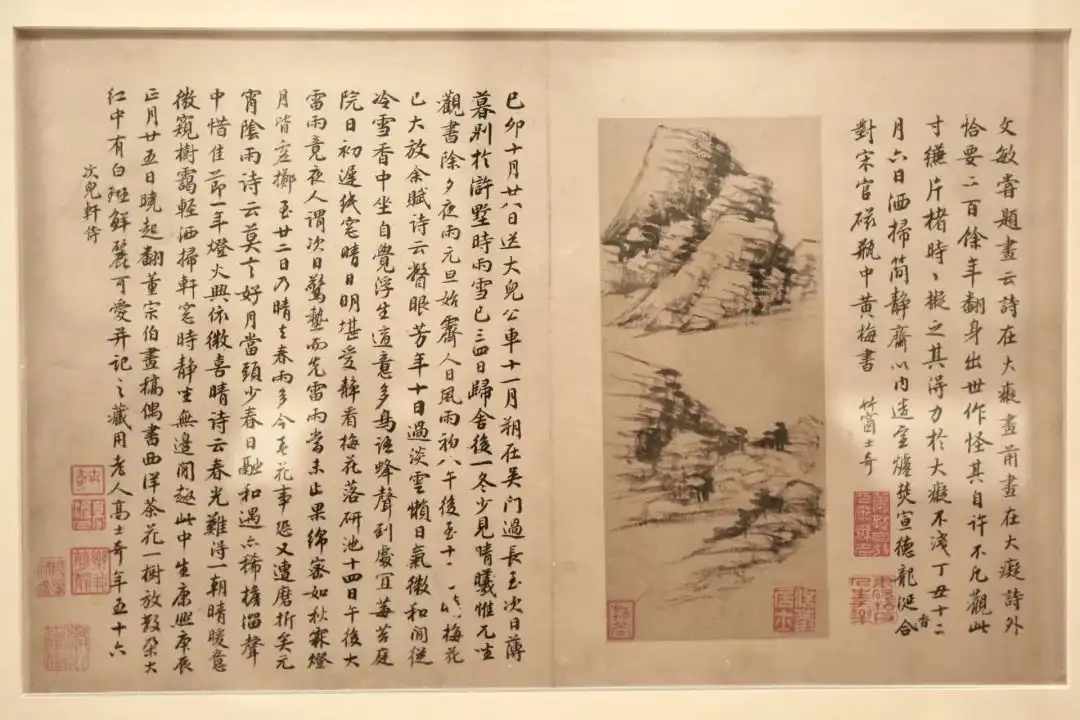 文敏嘗題畫云詩在大癡畫前畫在大癡詩外
恰要二百餘年翻身出世作怪其自許不凡觀此
寸縑片楮時〻擬之其得力於大癡不淺丁丑十二
月六日洒掃簡靜齋以內造宣爐焚宣德龍涎合香
對宋官磁瓶中黃梅書
竹窗士奇
己卯十月廿八日送大兒公車十一月朔在吳門過長至次日薄
暮別於滸墅時雨雪已三四日歸舍後一冬少見晴曦惟兀坐
觀書除夕夜雨元旦始霽人日風雨初八午後至十一
梅花
已大放余賦詩云瞥眼芳年十日過淡雲懶日氣微和閒從
冷雪香中坐自覺浮生適意多鳥語蜂聲到處宜莓苔庭
院日初遲紙窗晴日明堪受靜看梅花落研池十四日午後大
雷雨竟夜人謂次日驚蟄而先雷雨當未止果綿密如秋霖燈
月皆虛擲至廿二日乃晴立春雨多今春花事恐又遭磨折矣元
宵陰雨詩云莫言好月當頭少春日融和遇亦稀檐溜聲
中惜佳節一年燈火與依微喜晴詩云春光難得一朝晴暖意
微窺樹靄輕洒掃軒窗時靜坐無邊閒趣此中生康熙庚辰
正月廿五日曉起翻董宗伯畫稿偶書西洋茶花一樹放數朵大
紅中有白斑鮮麗可愛并記之藏用老人高士奇年五十六
次兒軒侍